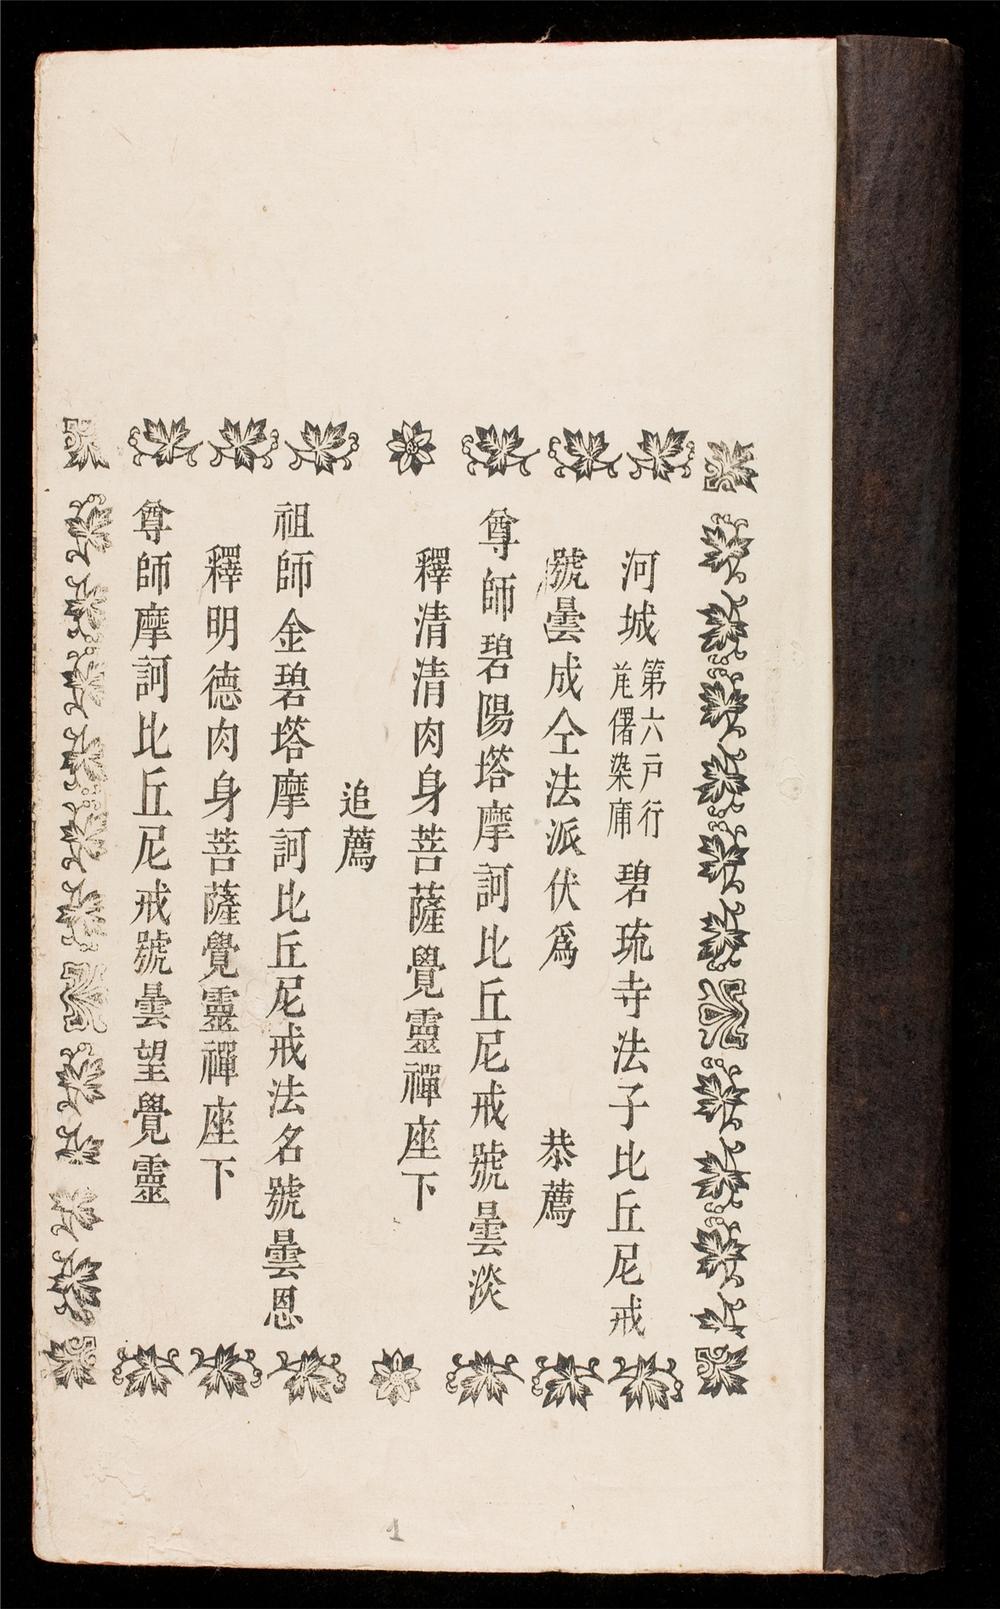 河城第六戸行
染庯
碧琉寺法子比丘尼戒
號曇成仝法派伏爲 恭薦
尊師碧陽塔摩訶比丘尼戒號曇淡
釋清清肉身菩薩覺靈禪座下
追薦
祖師金碧塔摩訶比丘尼戒法名號曇恩
釋明德肉身菩薩覺靈禪座下
尊師摩訶比丘尼戒號曇望覺靈
1